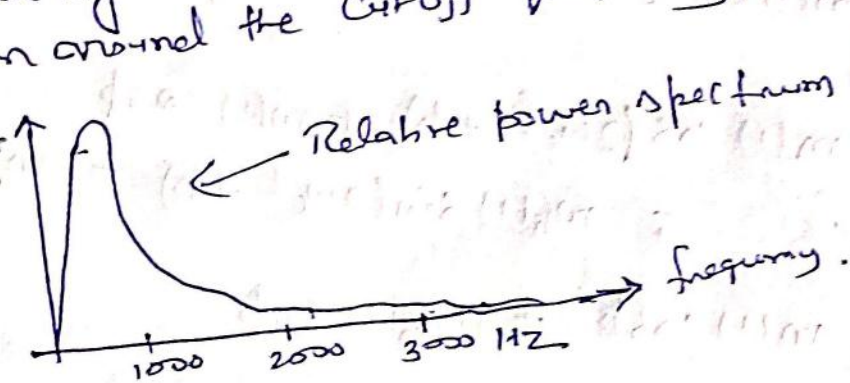 around the
Relative power spectrum
frequency.
1000 2000 3000 Hz